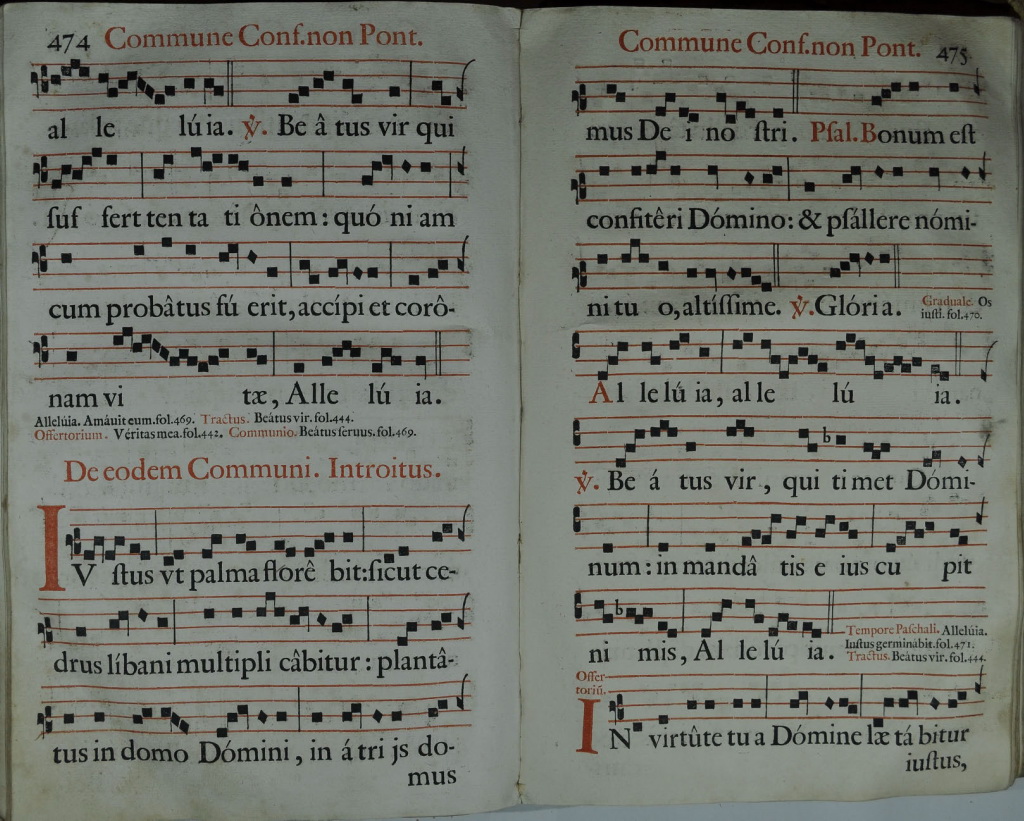 474 Commune Conf.non Pont.
al le lúia. ℣. Be â tus vir qui
ſuf fert ten ta ti ônem : quó ni am
cum probâtus fú erit, accípi et corô-
nam vi tæ, Alle lú ia.
Allelúia. Amáuit eum.fol.469. Tractus. Beátus vir.fol.444.
Offertorium. Véritas mea.fol.442. Communio. Beátus ſeruus.fol.469.
De eodem Communi. Introitus.
IV ſtus vt palma florê bit:ſicut ce-
drus líbani multipli câbitur : plantâ-
tus in domo Dómini , in á tri js do-
mus
Commune Conf.non Pont. 475
mus De i no ſtri. Pſal. Bonum eſt
confitêri Dómino: & pſállere nómi-
ni tu o,altíſſime. ℣. Glória. Graduale. Os
iuſti. fol.470.
Al le lú ia, al le lú ia.
℣. Be á tus vir , qui ti met Dómi-
num : in mandâ tis e ius cu pit
ni mis, Al le lú ia. Tempore Paſchali. Allelúia.
Iuſtus germinábit.fol.471.
Tractus. Beátus vir.fol.444.
Offer-
toriũ.
IN virtûte tu a Dómine læ tá bitur
iuſtus,